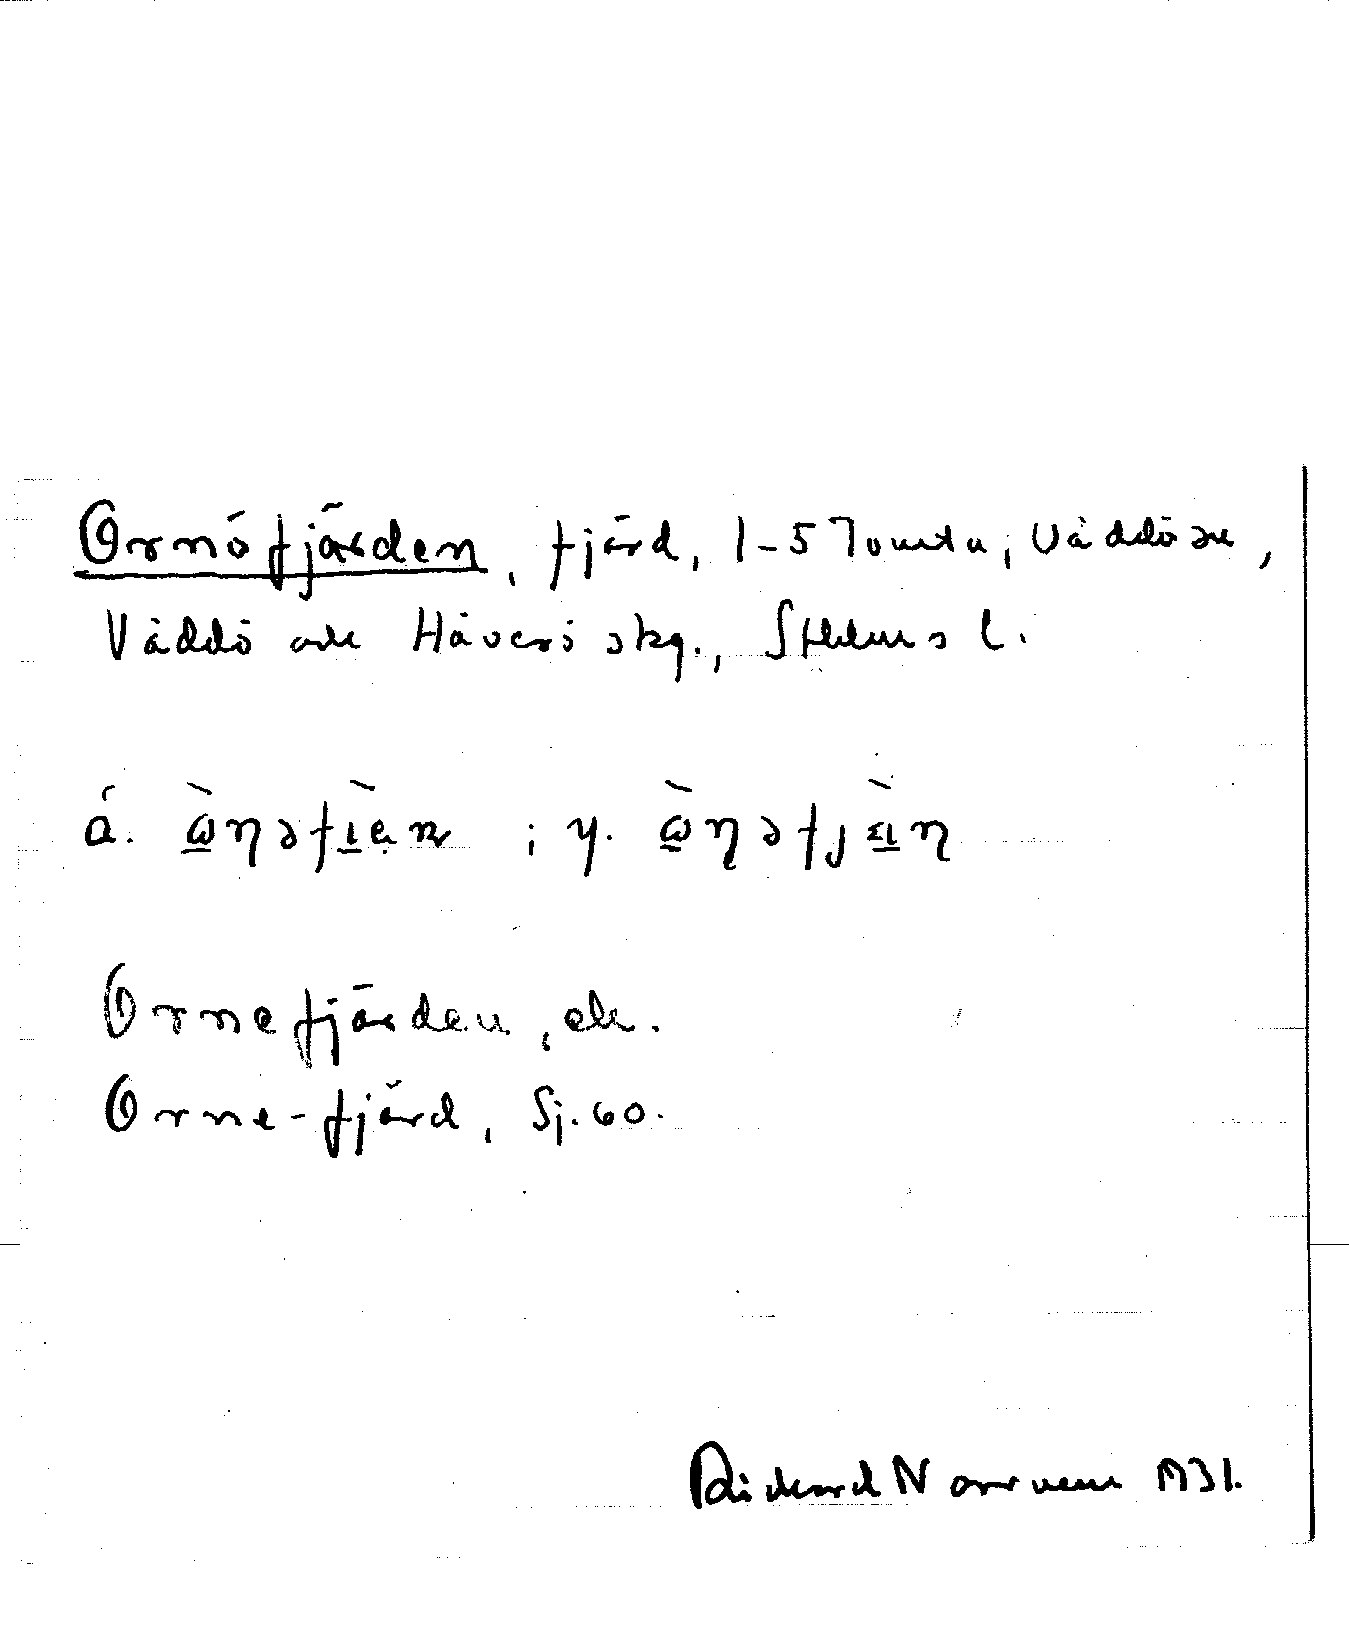 Ornöfjärden, fjärd, 1-5 Tomta, Väddö sn,
Väddö och Häverö skg., Sthlms l.
ä. ; y.
Ornefjärden, ek.
Orne-fjärd, Sj. 60.
Rickard Norrven 1931.